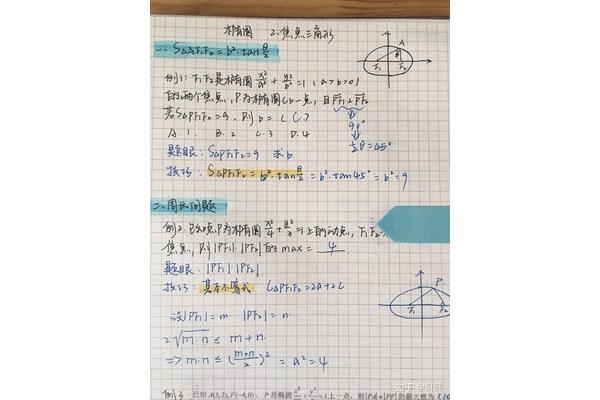 椭圆 2.焦点三角形
一、S△PF₁F₂=b²·tan θ/2
例1:F₁F₂是椭圆 x²/a² + y²/b² =1 (a>b>0)
的两个焦点,P为椭圆C上一点,且PF₁⊥PF₂
若S△PF₁F₂=9,则b=( C )
90°
A.1 B.2 C.3 D.4
½θ=45°
题眼:S△PF₁F₂=9 求b
技巧:S△PF₁F₂=b²·tan θ/2 =b²·tan45°=b²=9
二、周长问题
例2.已知点P为椭圆 x²/4 + y²/3 =1上的动点,F₁F₂
焦点,则|PF₁|·|PF₂|的max= 4
题眼:|PF₁|·|PF₂|
技巧:基本不等式 C△PF₁F₂=2a+2c
设|PF₁|=m |PF₂|=n
2√m·n ≤ m+n
=> m·n ≤ (m+n/2)² = a²=4
例3. 已知A(3,2),F(-4,0),P是椭圆 上一点,则|PA|+|PF|的最大值为
A
F₁
P
F₁ F₂
知乎 @贝贝